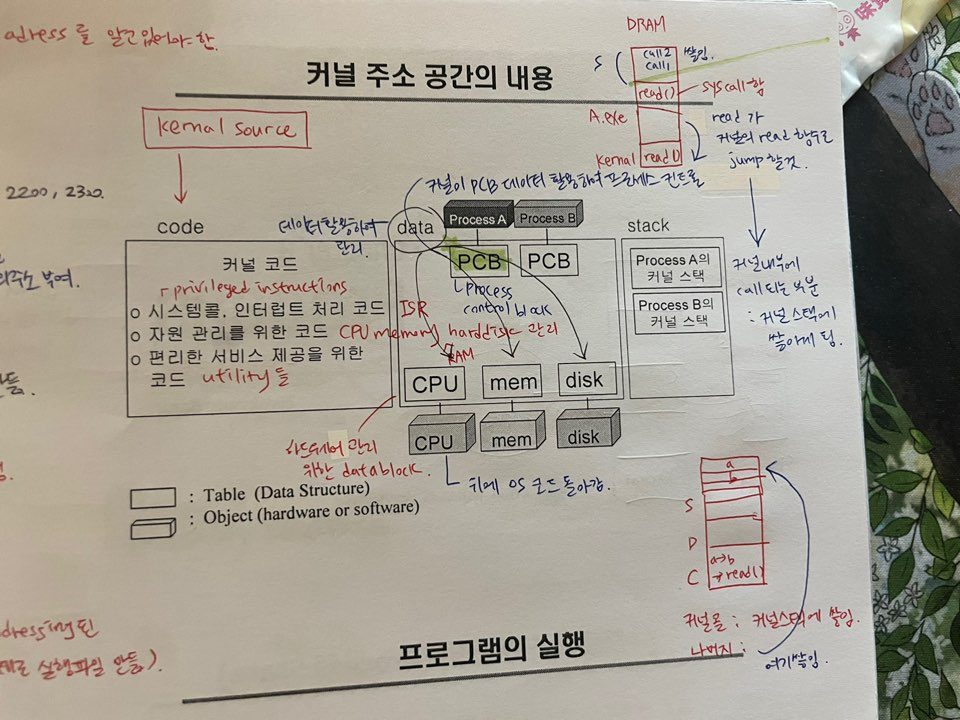 adress를 알고있어야 한.
DRAM
S
call2
call1
쌓임.
커널 주소 공간의 내용
read()
syscall 함
A.exe
kernal source
read 가
커널의 read 함수로
jump 할것
kernal
read()
2200, 2320.
커널이 PCB 데이터 활용하여 프로세스 컨트롤
code
데이터활용하여
관리
data
Process A
Process B
stack
커널 코드
PCB
PCB
Process A의
커널 스택
의주소 부여.
privileged instructions
process
control block
Process B의
커널 스택
커널내부에
call 되는 부분
: 커널 스택에
쌓이게 됨.
o 시스템콜, 인터럽트 처리 코드
ISR
o 자원 관리를 위한 코드
CPU memory harddisc 관리
o 편리한 서비스 제공을 위한
코드
utility들
RAM
CPU
mem
disk
CPU
mem
disk
하드웨어 관리
위한 datablock.
뒤에 OS 코드 돌아감.
: Table (Data Structure)
: Object (hardware or software)
a
b
S
D
a→b
C
→read()
커널콜 : 커널스택에 쌓임.
나머지 :
여기쌓임.
실행파일 만듦).
프로그램의 실행